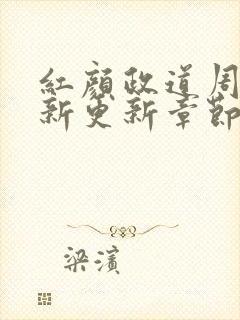 紅顏政道周
新更新章節
梁濱